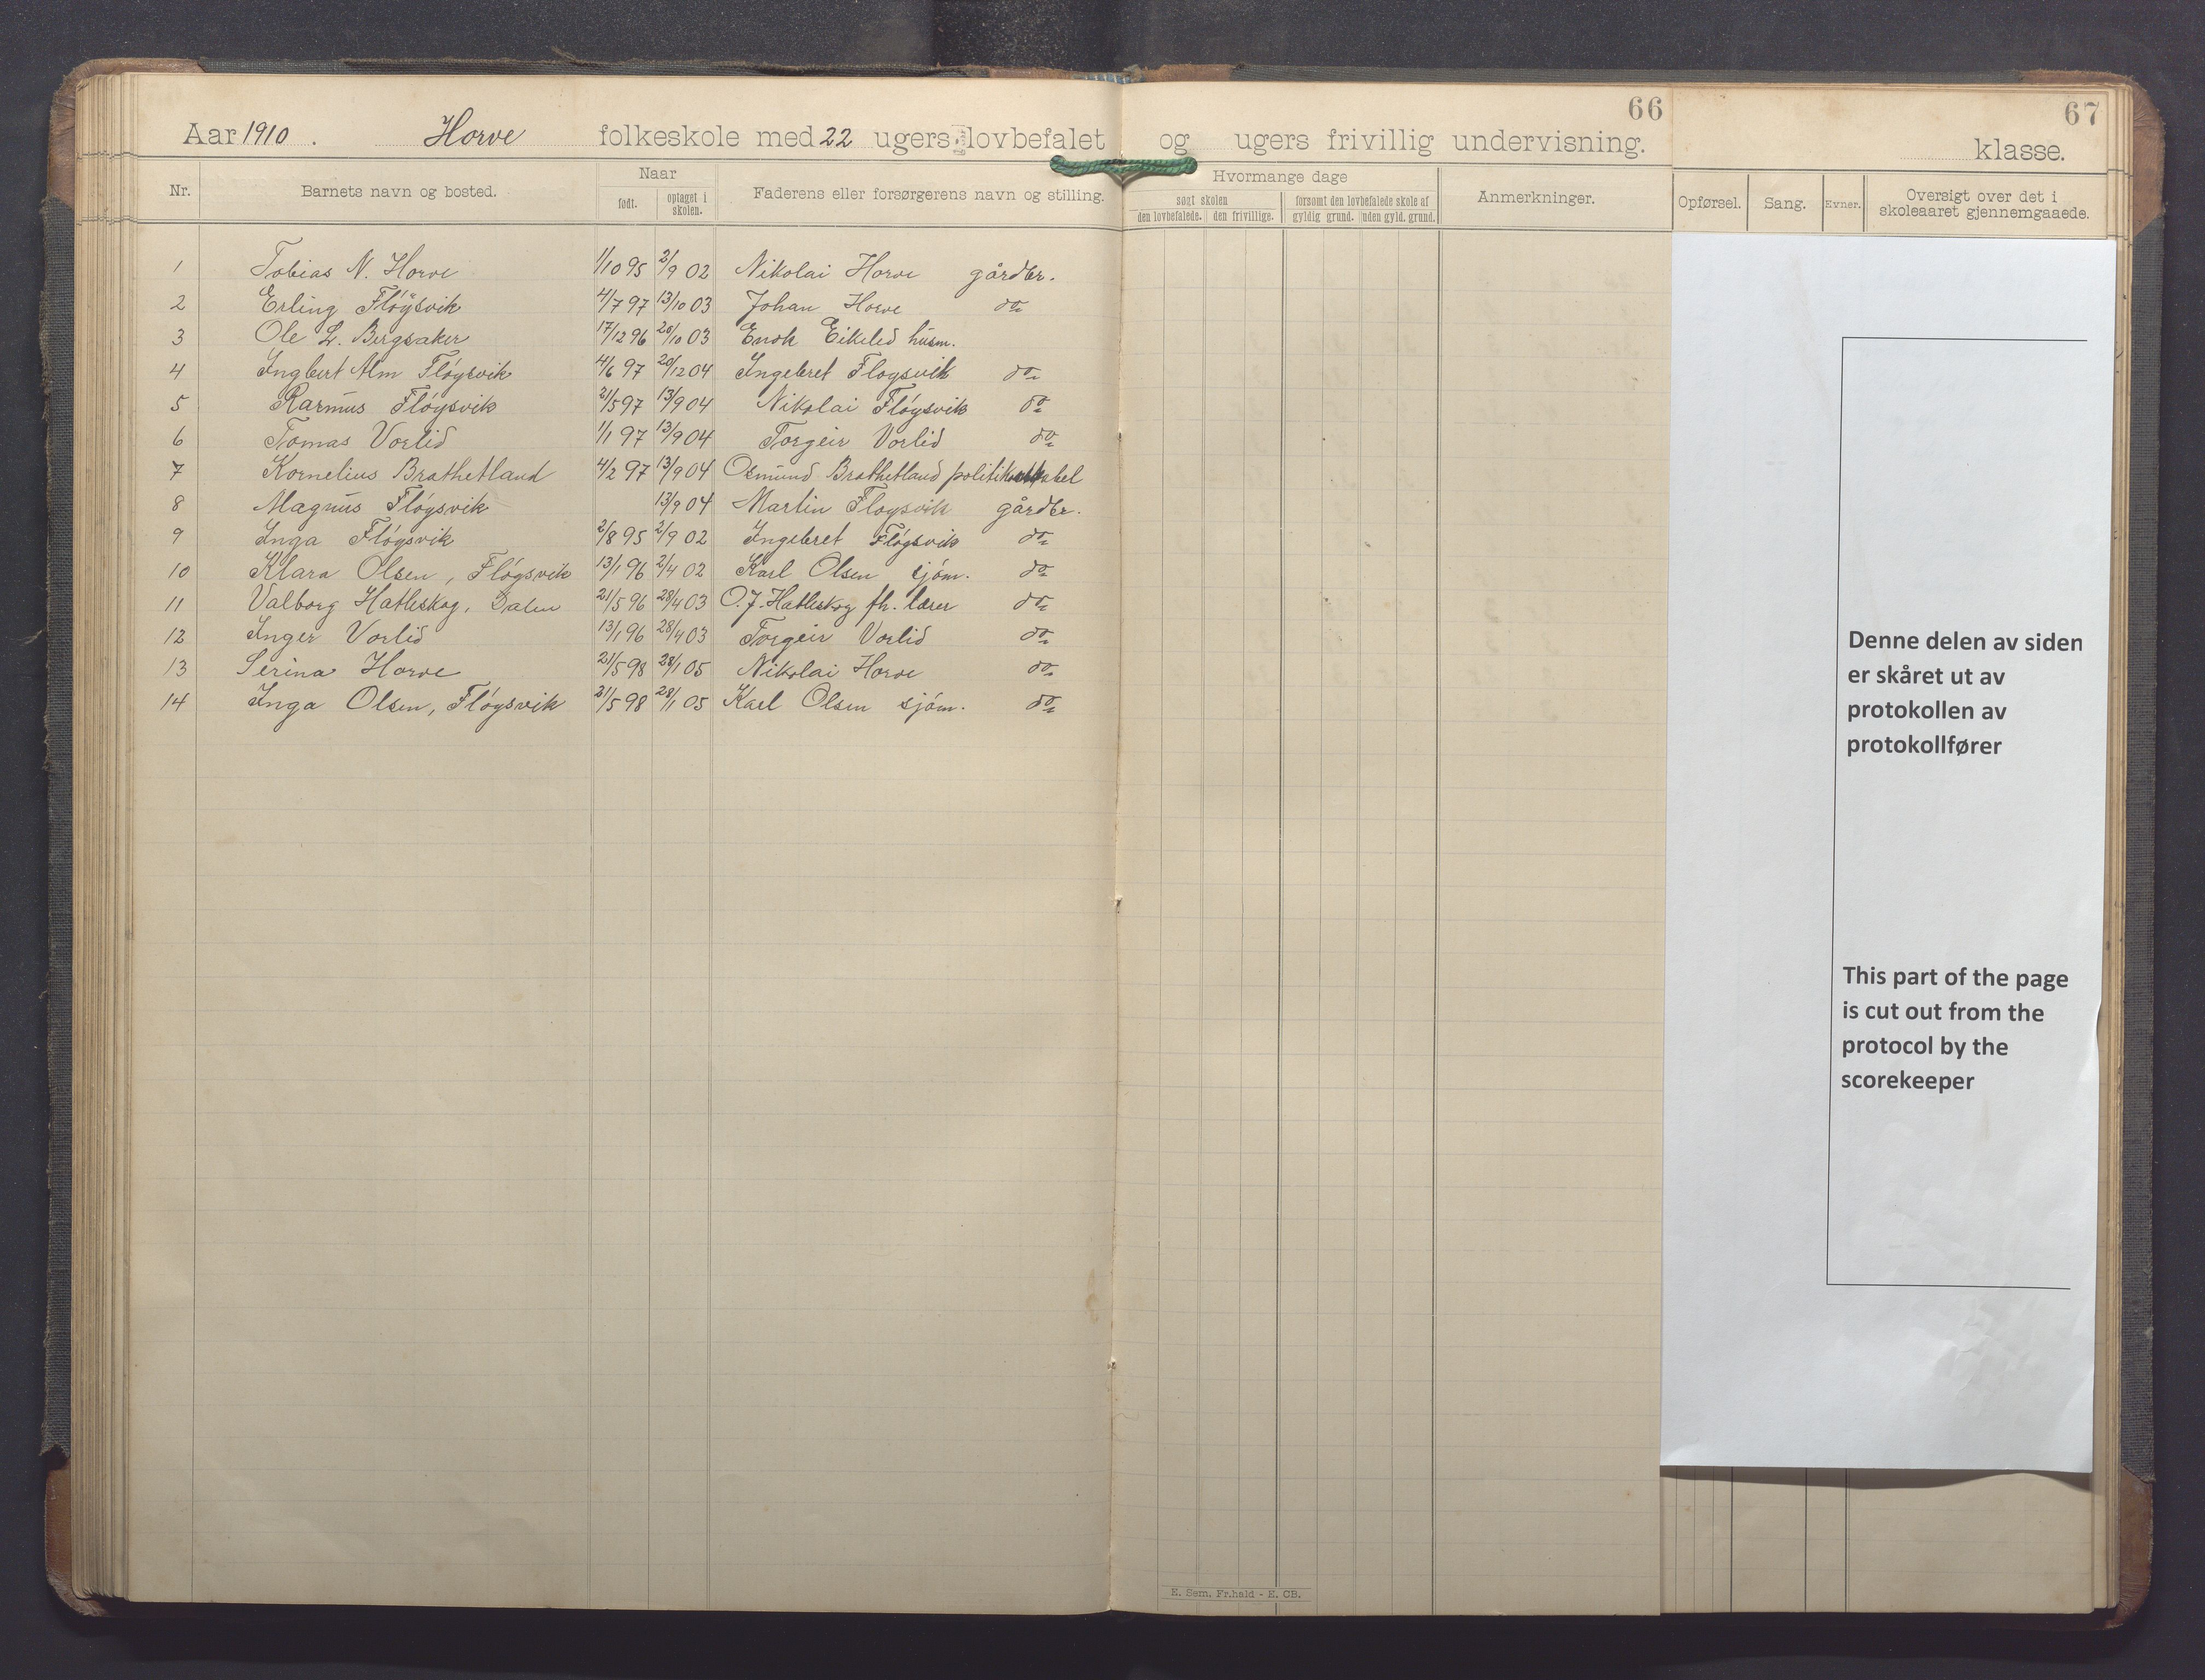 66
67
Aar 1910. Horve folkeskole med 22 ugers lovbefalet og ugers frivillig undervisning.
klasse.
Nr. Barnets navn og bosted. Naar født. optaget i skolen. Faderens eller forsørgerens navn og stilling. Hvormange dage søgt skolen den lovbefalede. den frivillige. forsømt den lovbefalede skole af gyldig grund. uden gyld. grund. Anmerkninger. Opførsel. Sang. Evner. Oversigt over det i skoleaaret gjennemgaaede.
1 Tobias N. Horve 1/10 95 2/9 02 Nikolai Horve gårdbr.
2 Erling Fløysvik 4/7 97 13/10 03 Johan Horve do
3 Ole L. Bergsaker 17/12 96 20/10 03 Enok Eikelid husm.
4 Ingbert Alm Fløysvik 4/6 97 20/12 04 Ingebret Fløysvik do
5 Rasmus Fløysvik 21/5 97 13/9 04 Nikolai Fløysvik do
6 Tomas Vorlid 1/1 97 13/9 04 Torgeir Vorlid do
7 Kornelius Brathetland 4/2 97 13/9 04 Osmund Brathetland
8 Magnus Fløysvik 13/9 04 Martin Fløysvik gårdbr.
9 Inga Fløysvik 2/8 95 2/9 02 Ingebret Fløysvik do
10 Klara Olsen, Fløysvik 13/1 96 2/4 02 Karl Olsen sjøm. do
11 Valborg Hatleskog, Dalen 21/5 96 28/4 03 O. J. Hatleskog fh. lærer do
12 Inger Vorlid 13/1 96 28/4 03 Torgeir Vorlid do
13 Serina Horve 21/5 98 28/1 05 Nikolai Horve do
14 Inga Olsen, Fløysvik 21/5 98 28/1 05 Karl Olsen sjøm. do
Denne delen av siden
er skåret ut av
protokollen av
protokollfører
This part of the page
is cut out from the
protocol by the
scorekeeper
E. Sem, Fr.hald - E. CB.